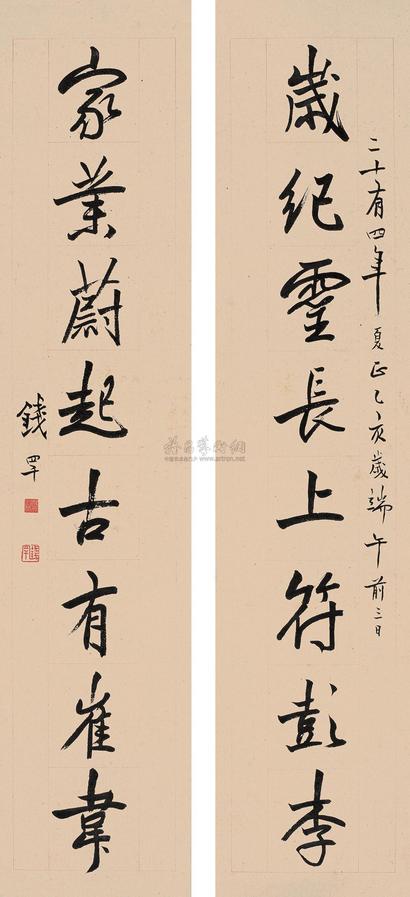 二十有四年夏正乙亥歲端午前三日
歲紀靈長上符彭李
家業蔚起古有崔韋
錢罕
雅昌藝術網
www.artron.net